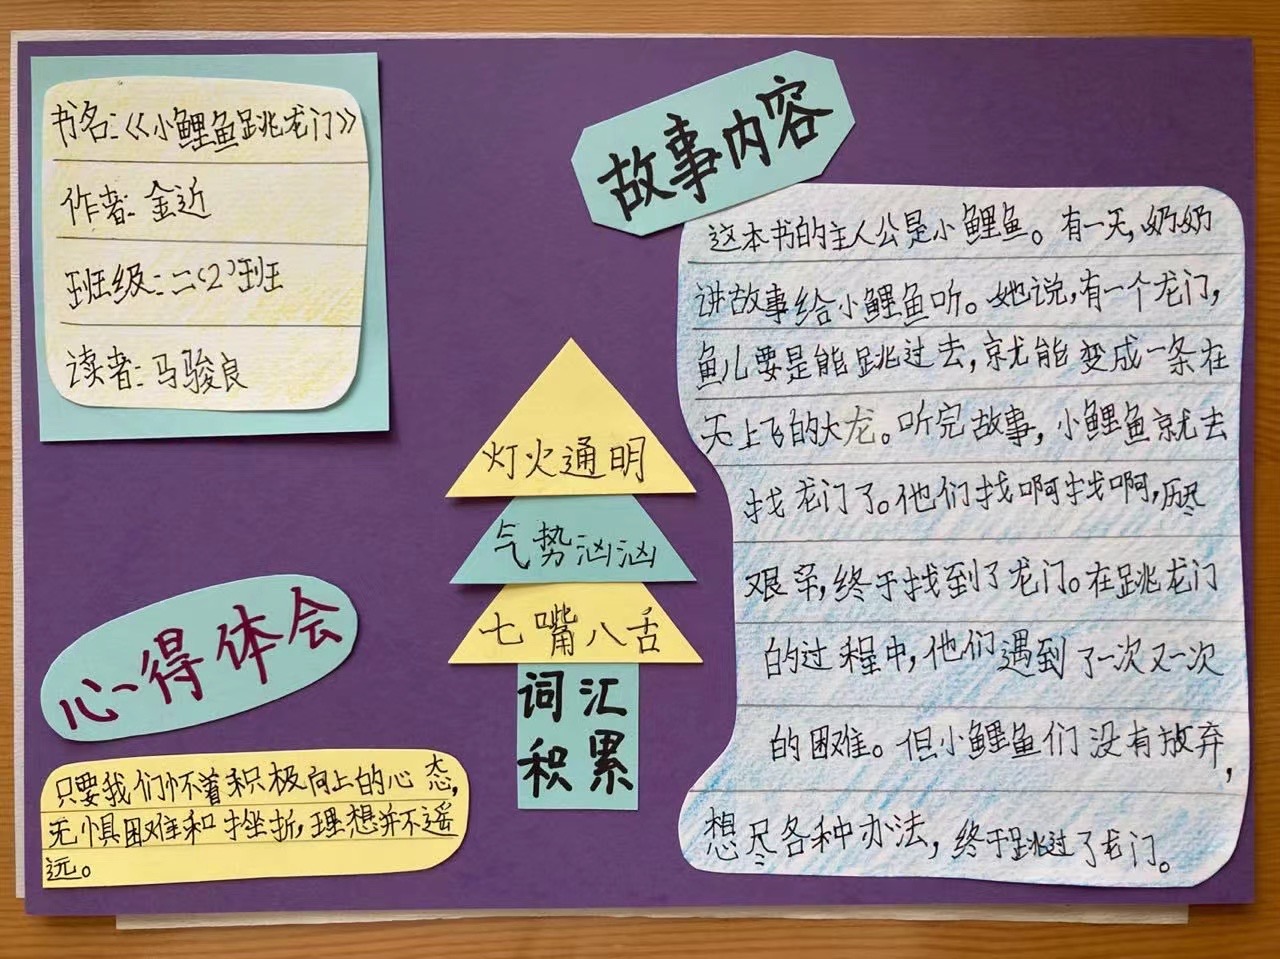 书名:《小鲤鱼跳龙门》
作者:金近
班级:二(2)班
读者:马骏良
故事内容
这本书的主人公是小鲤鱼。有一天,奶奶
讲故事给小鲤鱼听。她说,有一个龙门,
鱼儿要是能跳过去,就能变成一条在
天上飞的大龙。听完故事,小鲤鱼就去
找龙门了。他们找啊找啊,历尽
艰辛,终于找到了龙门。在跳龙门
的过程中,他们遇到了一次又一次
的困难。但小鲤鱼们没有放弃,
想尽各种办法,终于跳过了龙门。
灯火通明
气势汹汹
七嘴八舌
词汇
积累
心得体会
只要我们怀着积极向上的心态,
无惧困难和挫折,理想并不遥
远。